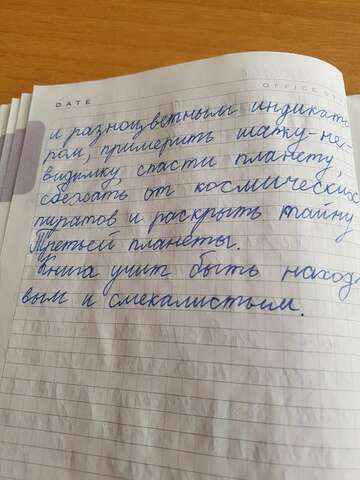 DATE
OFFICE
и разноцветным индикато
ром, примерить шапку-не-
видимку спасти планету,
сбежать от космических
пиратов и раскрыть тайну
Третьей планеты.
Книга учит быть наход
вым и смекалистым.